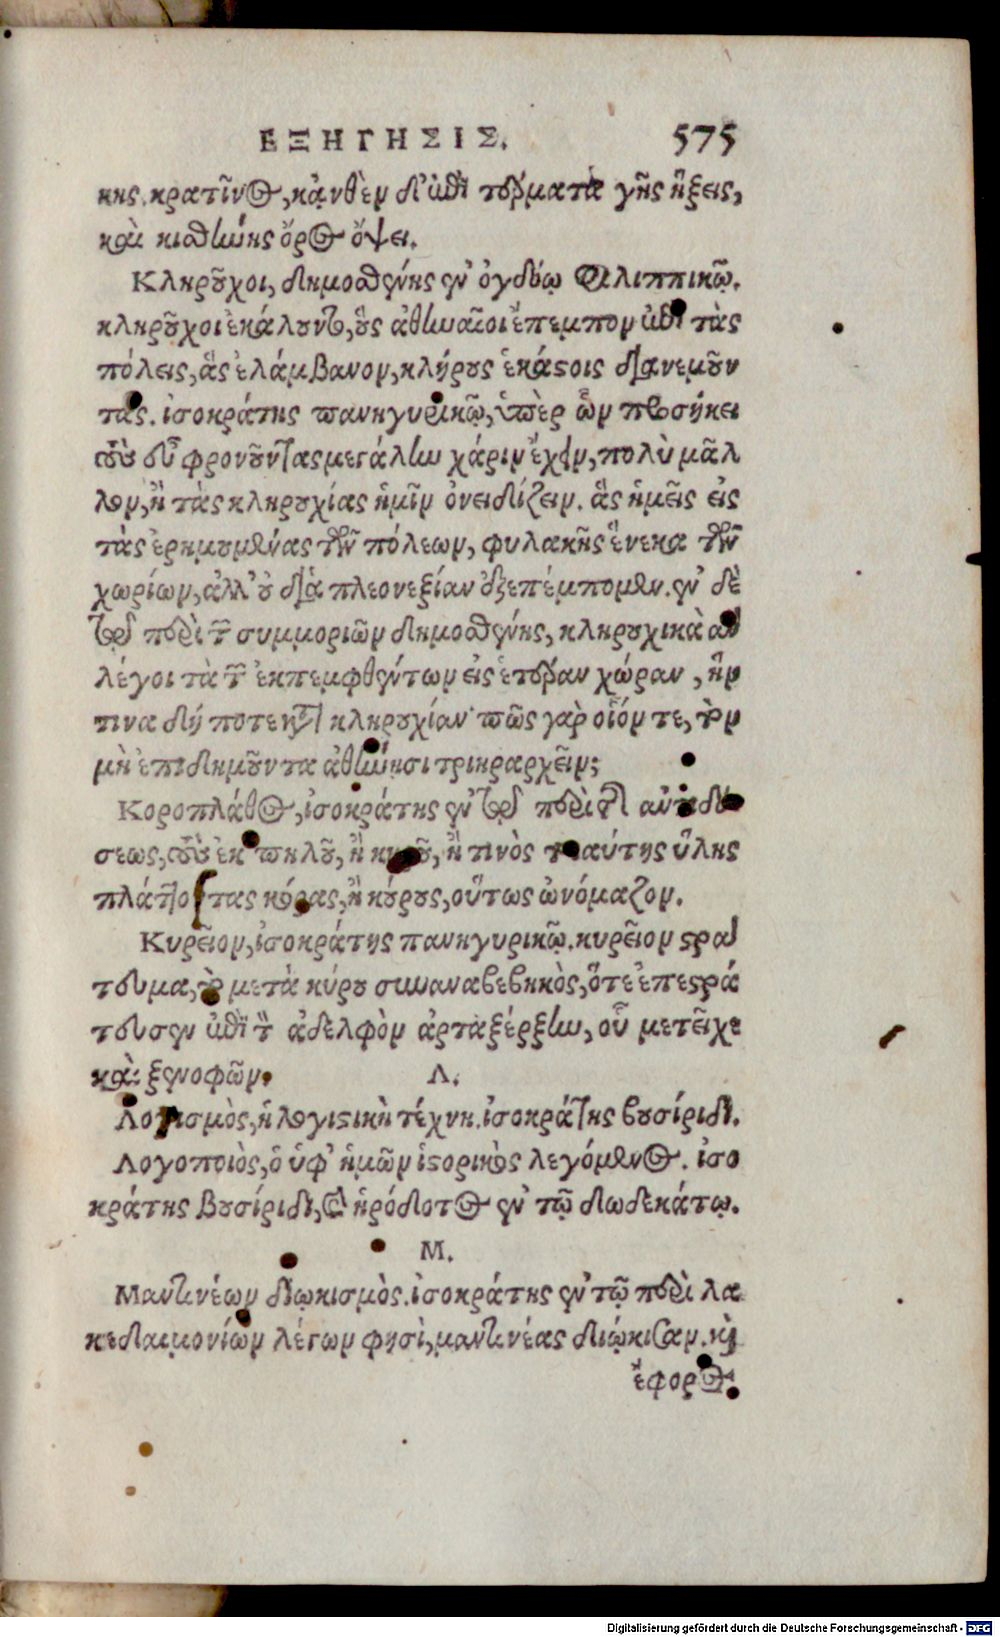 ΕΞΗΓΗΣΙΣ. 575
κης. κρατῖνος, κᾀνθὲν δ' ἐπὶ τέρματα γῆς ἥξεις,
καὶ κισθήνης ὄρος ὄψει.
Κληροῦχοι, δημοσθένης ἐν ὀγδόῳ Φιλιππικῷ.
κληροῦχοι ἐκάλουντο, οὓς ἀθηναῖοι ἔπεμπον ἐπὶ τὰς
πόλεις, ἃς ἐλάμβανον, κλήρους ἑκάστοις διανεμοῦν
τας. ἰσοκράτης πανηγυρικῷ, ὑπὲρ ὧν προσήκει
τοὺς εὖ φρονοῦντας μεγάλην χάριν ἔχειν, πολὺ μᾶλ
λον, ἢ τὰς κληρουχίας ἡμῖν ὀνειδίζειν. ἃς ἡμεῖς εἰς
τὰς ἐρημουμένας τῶν πόλεων, φυλακῆς ἕνεκα τῶν
χωρίων, ἀλλ' οὐ διὰ πλεονεξίαν ἐξεπέμπομεν. ἐν δὲ
τῷ περὶ τῶν συμμοριῶν δημοσθένης, κληρουχικὰ ἂν
λέγοι τὰ τῶν ἐκπεμφθέντων εἰς ἑτέραν χώραν, ἥν
τινα δή ποτε κληρουχίαν· πῶς γὰρ οἷόν τε, τὸν
μὴ ἐπιδημοῦντα ἀθήνησι τριηραρχεῖν;
Κοροπλάθος, ἰσοκράτης ἐν τῷ περὶ τῆς ἀντιδό
σεως, τοὺς ἐκ πηλοῦ, ἢ κηροῦ, ἢ τινὸς τοιαύτης ὕλης
πλάττοντας κόρας, ἢ κόρους, οὕτως ὠνόμαζον.
Κυρεῖον, ἰσοκράτης πανηγυρικῷ. κυρεῖον στρά
τευμα, τὸ μετὰ κύρου συναναβεβηκὸς, ὅτε ἐπεστρά
τευσεν ἐπὶ τὸν ἀδελφὸν ἀρταξέρξην, οὗ μετεῖχε
καὶ ξενοφῶν. Λ.
Λογισμὸς, ἡ λογιστικὴ τέχνη. ἰσοκράτης βουσίριδι.
Λογοποιὸς, ὁ ὑφ' ἡμῶν ἱστορικὸς λεγόμενος. ἰσο
κράτης βουσίριδι, καὶ ἡρόδοτος ἐν τῷ δωδεκάτῳ.
Μ.
Μαντινέων διῳκισμὸς. ἰσοκράτης ἐν τῷ περὶ λα
κεδαιμονίων λέγων φησὶ, μαντινέας διῴκισαν. καὶ
ἔφορος
Digitalisierung gefördert durch die Deutsche Forschungsgemeinschaft - DFG